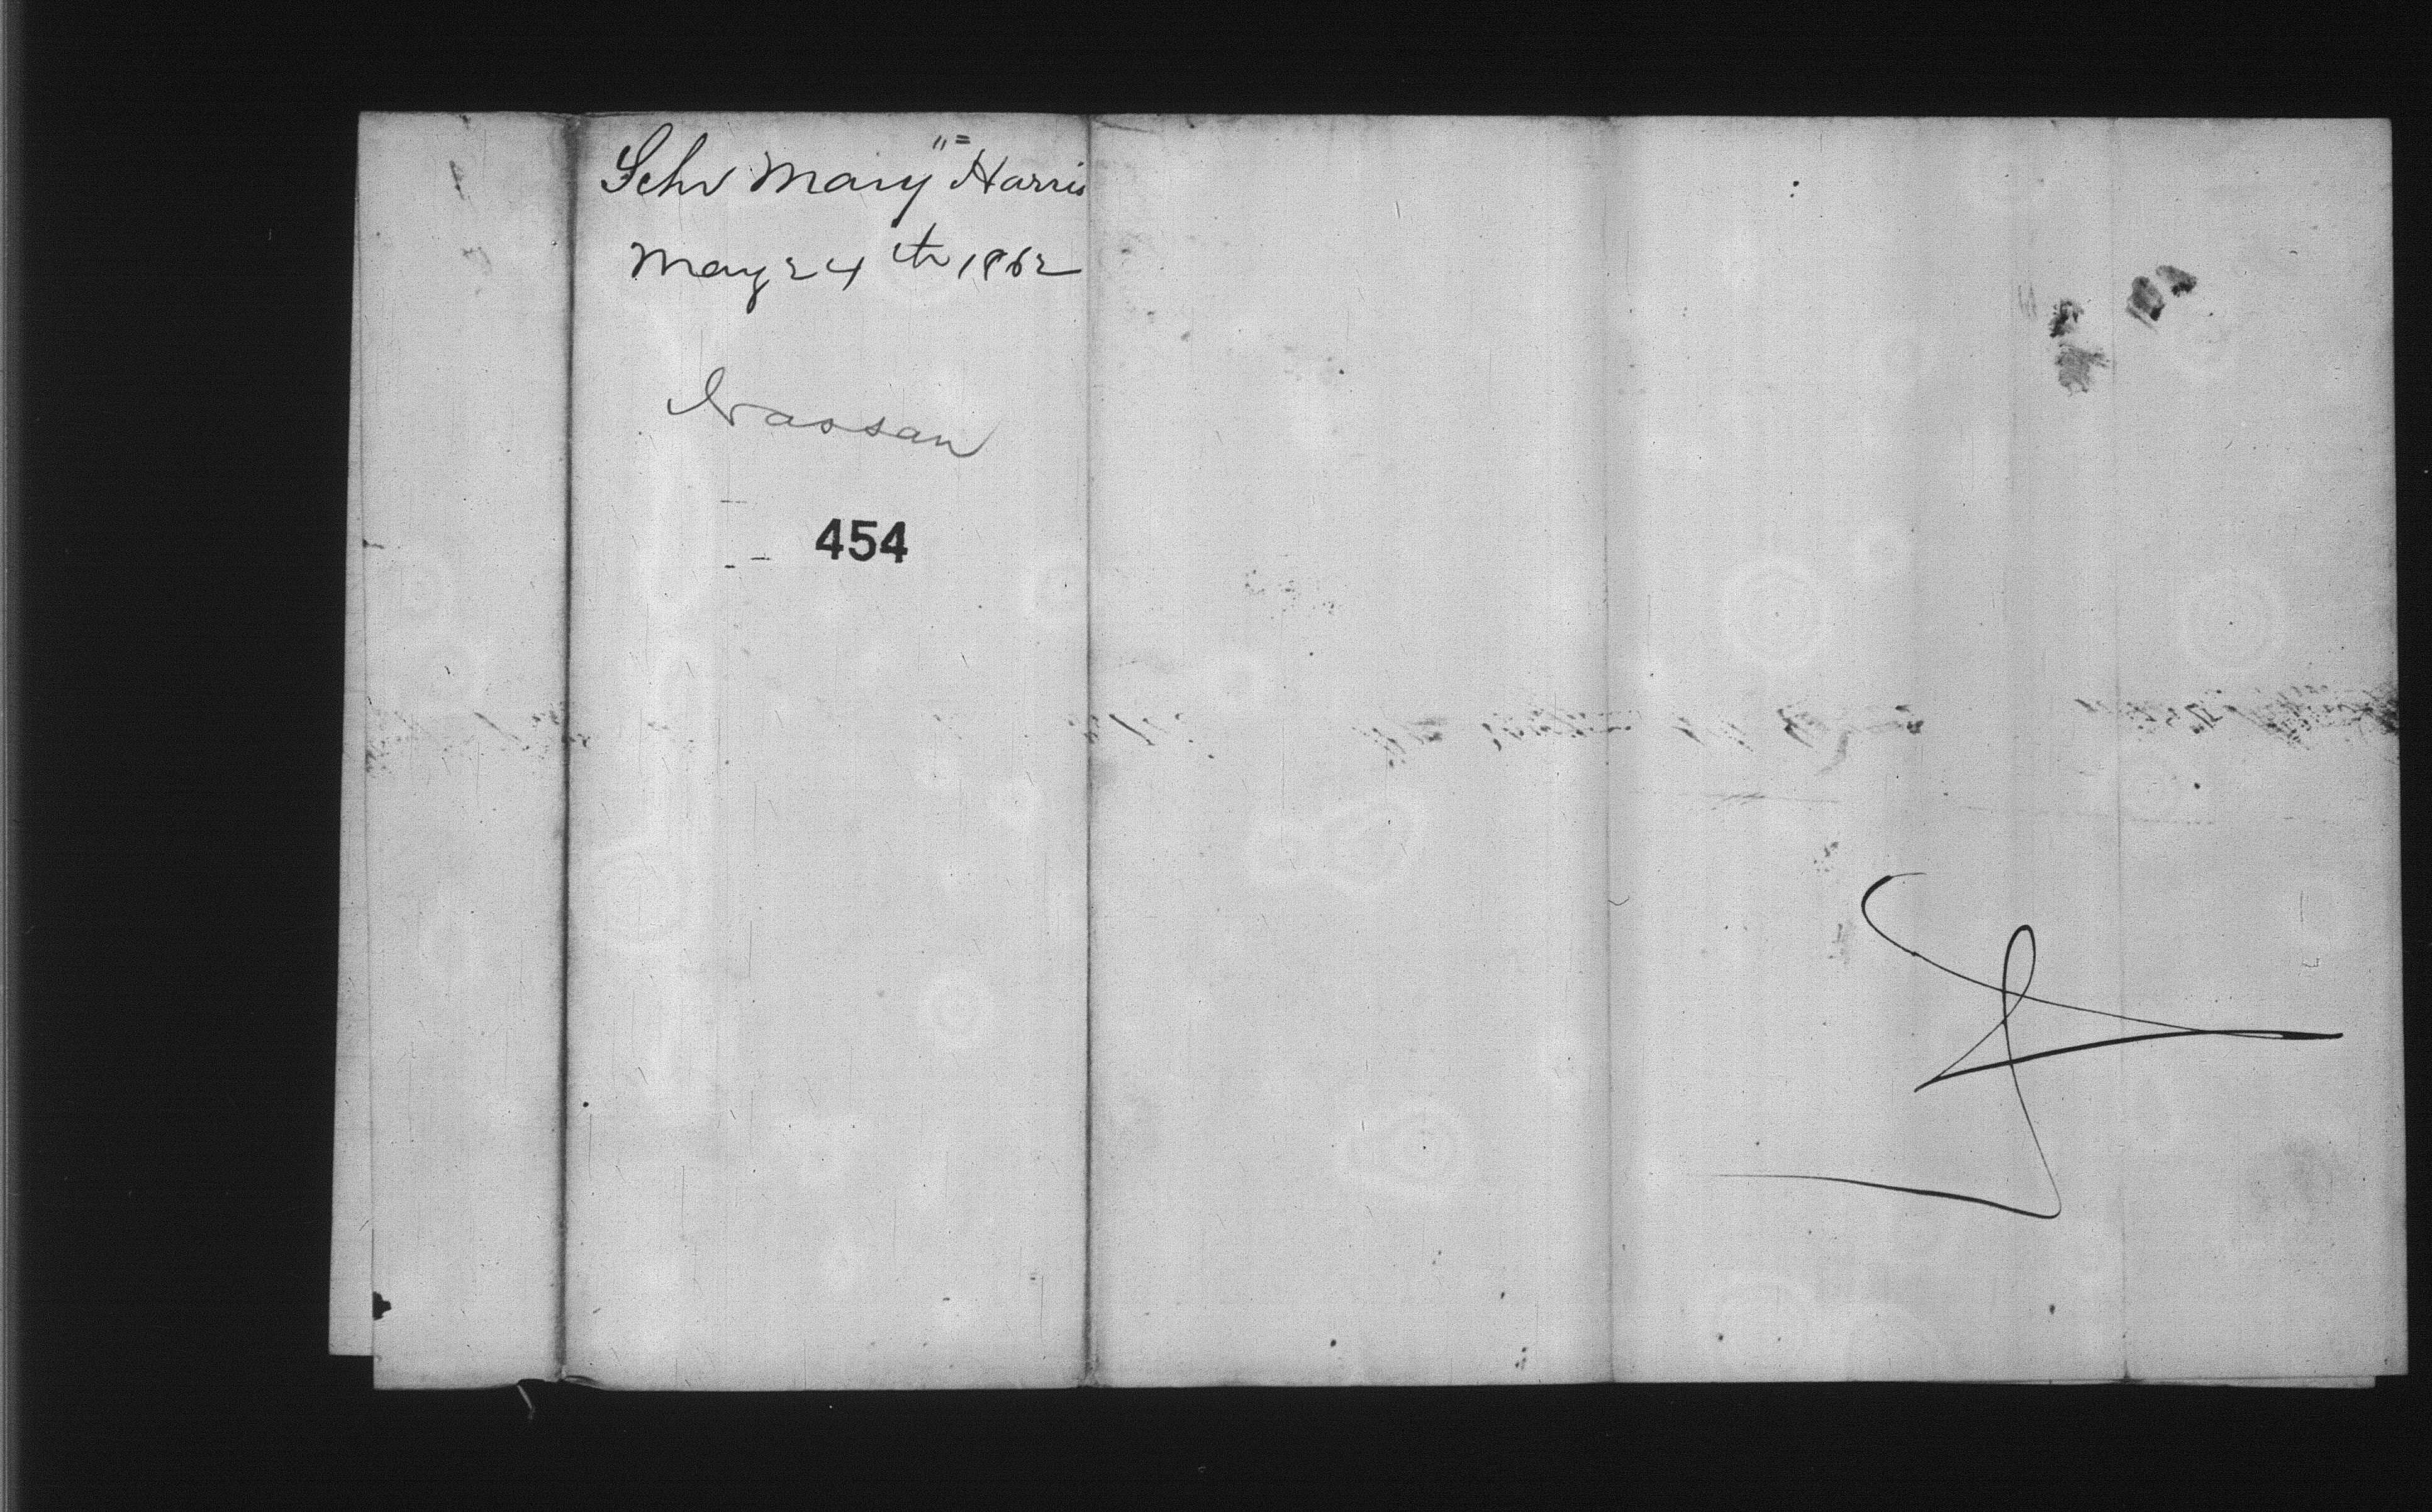 Schr Mary "=Harris
May 24th 1862
Nassau
454